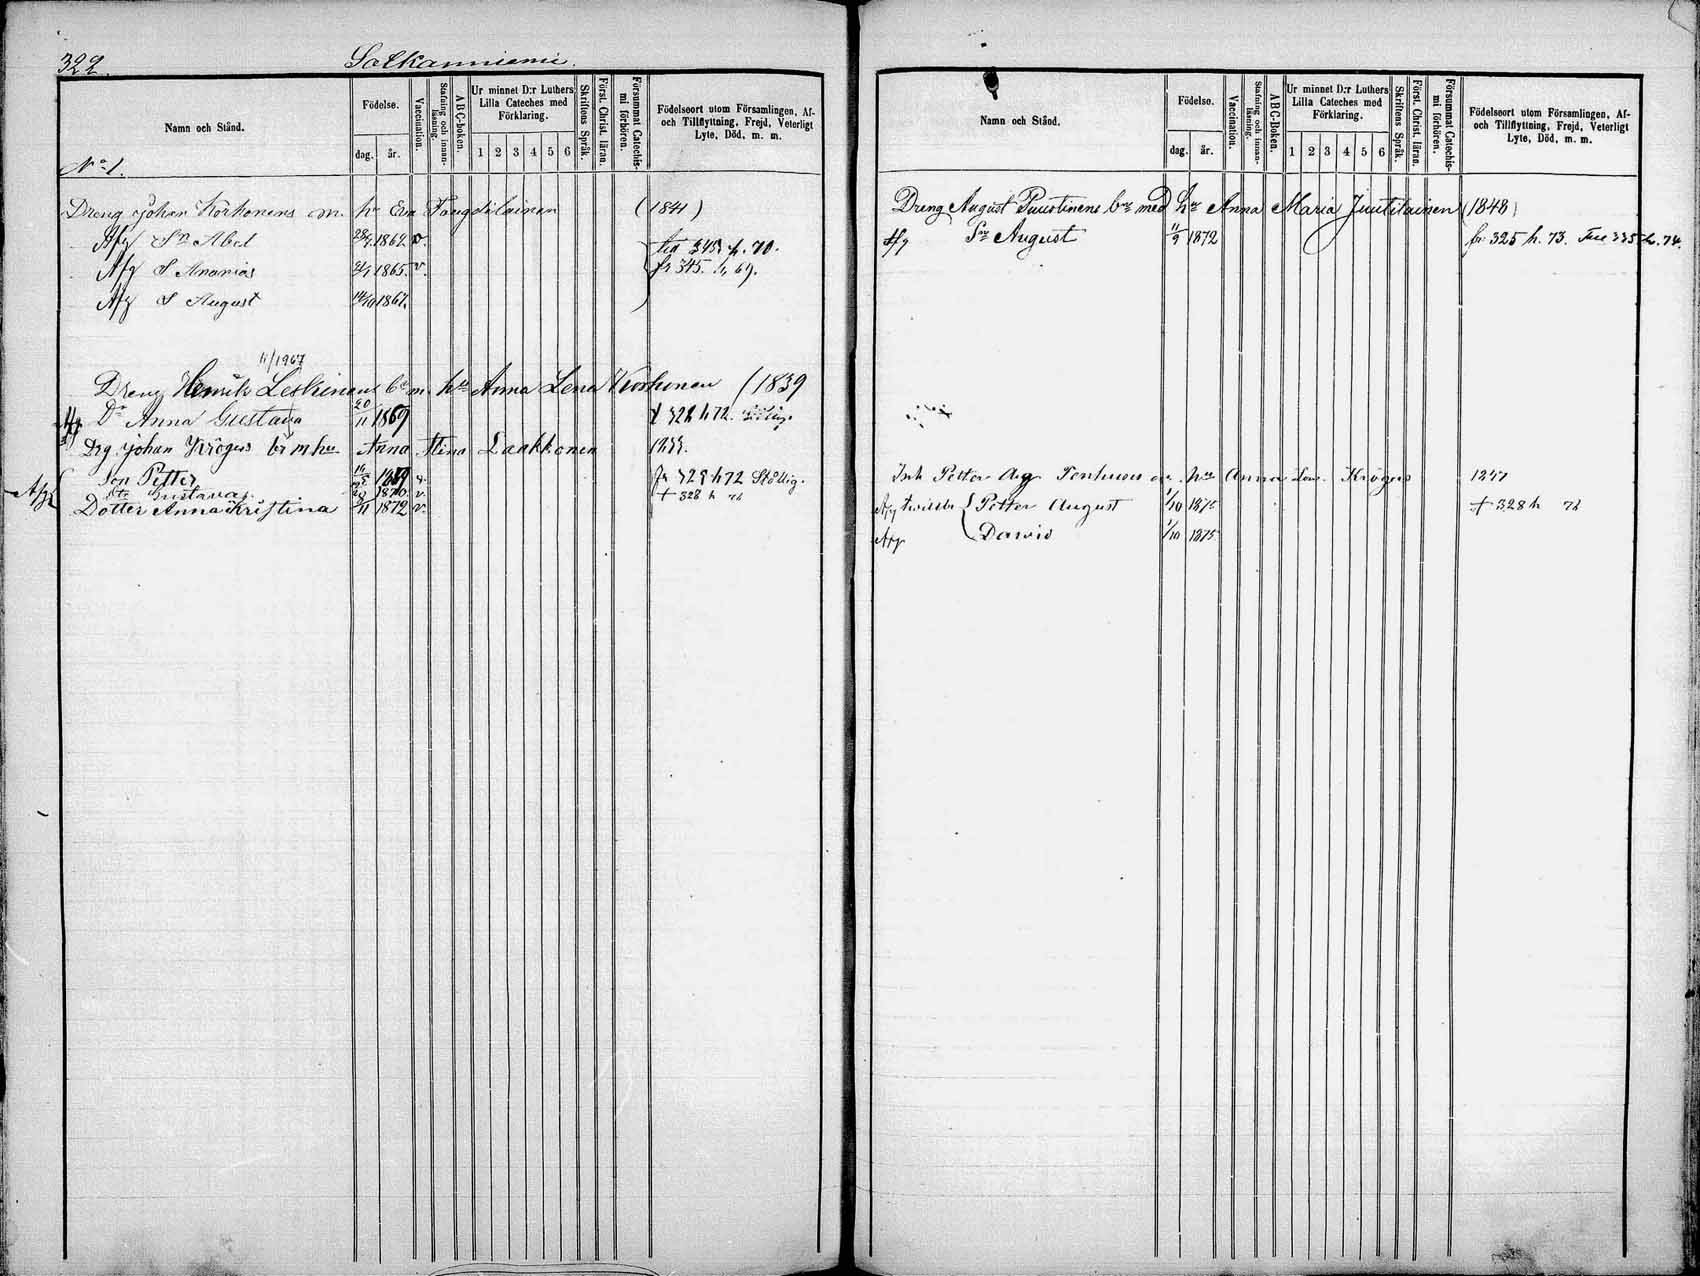 322. Salkanniemi.
Namn och Stånd.
Födelse.
dag. år.
Vaccination.
Stafning och innanläsning.
ABC-boken.
Ur minnet D:r Luthers Lilla Cateches med Förklaring.
1 2 3 4 5 6
Skriftens Språk.
Först. Christ. läran.
Försummat Catechismi förhören.
Födelseort utom Församlingen, Af- och Tillflyttning, Frejd, Veterligt Lyte, Död, m. m.
No 1.
Dreng Johan Korhonens m. hu Eva (1841)
Afg Sn Abel 1862. v. 345 h. 70.
Afg S Ananias 1865 v. fr 345. h 69.
Afg S August 14/10 1867.
11/1967
Dreng Henrik Leskinens bn m. hu Anna Lena Korhonen (1839
Dr Anna Gustava 20/11 1869 328 h 72.
Drg Johan Krögers br m hu Anna Stina Laakkonen
Afg
Son Petter 1869 v. fr 328 h 72
Dtr Gustava 1870. v. + 328 h
Dotter Anna Kristina 1872 v.
Namn och Stånd.
Födelse.
dag. år.
Vaccination.
Stafning och innanläsning.
ABC-boken.
Ur minnet D:r Luthers Lilla Cateches med Förklaring.
1 2 3 4 5 6
Skriftens Språk.
Först. Christ. läran.
Försummat Catechismi förhören.
Födelseort utom Församlingen, Af- och Tillflyttning, Frejd, Veterligt Lyte, Död, m. m.
Dreng August Puustinens bn med hu Anna Maria Juutilainen (1848)
Afg Sn August 11/9 1872 fr 325 h. 73. 335 h. 74.
Inh Petter Aug Tenhunen hu Anna Krögers
Afg Petter August 1/10 1875 + 328 h
Afg David 1/10 1875